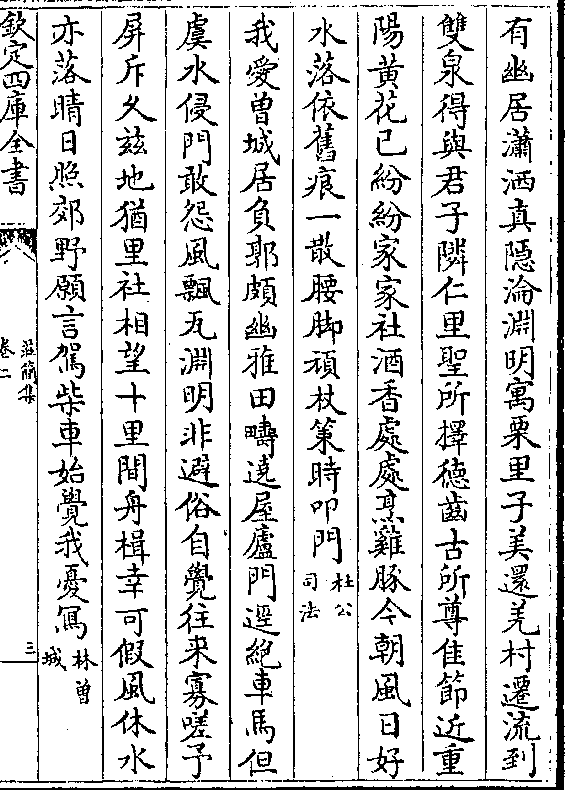 有幽居瀟洒真隱淪淵明寓栗里子美還羌村遷流到
雙泉得與君子隣仁里聖所擇德齒古所尊佳節近重
陽黃花已紛紛家家社酒香處處烹雞豚今朝風日好
水落依舊痕一散腰脚頑杖策時叩門杜公司法
我愛曾城居負郭頗幽雅田疇遶屋廬門逕絕車馬但
虞水侵門敢怨風飄瓦淵明非避俗自覺往來寡嗟予
屏斥久茲地猶里社相望十里間舟楫幸可假風休水
亦落晴日照郊野願言駕柴車始覺我憂寫林曾城
欽定四庫全書
莊簡集
卷二
三